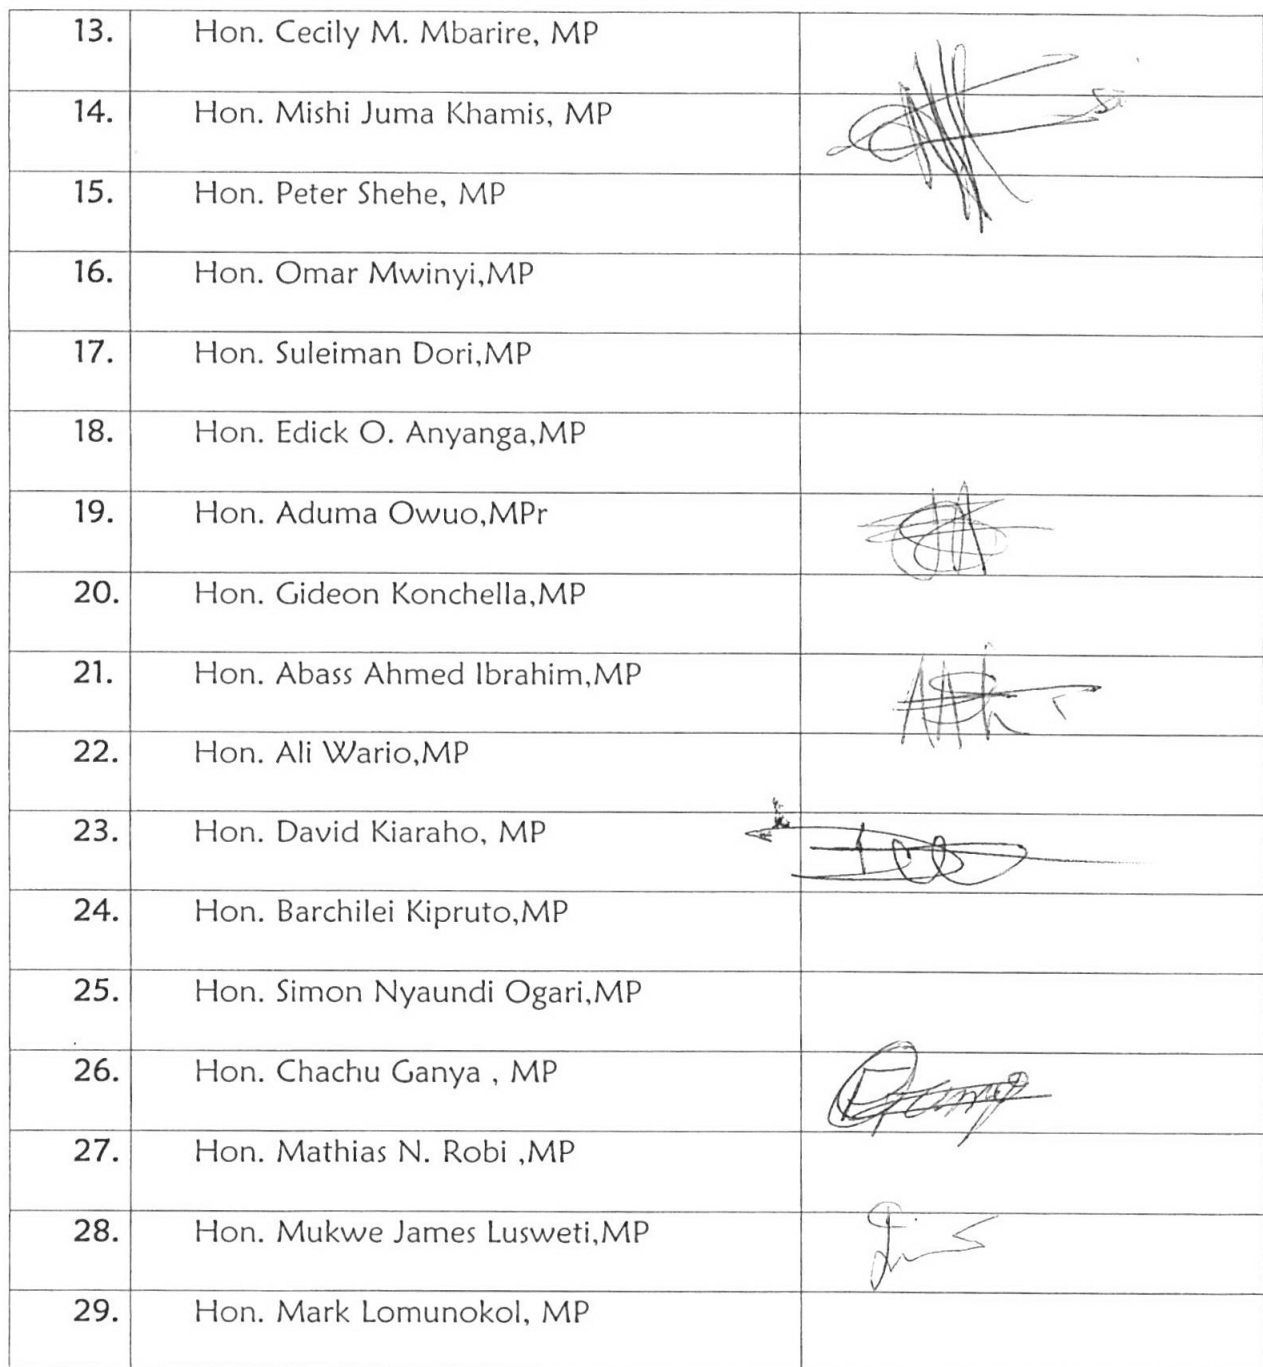 13. Hon. Cecily M. Mbarire, MP
14. Hon. Mishi Juma Khamis, MP
15. Hon. Peter Shehe, MP
16. Hon. Omar Mwinyi,MP
17. Hon. Suleiman Dori,MP
18. Hon. Edick O. Anyanga,MP
19. Hon. Aduma Owuo,MPr
20. Hon. Gideon Konchella,MP
21. Hon. Abass Ahmed Ibrahim,MP
22. Hon. Ali Wario,MP
23. Hon. David Kiaraho, MP
24. Hon. Barchilei Kipruto,MP
25. Hon. Simon Nyaundi Ogari,MP
26. Hon. Chachu Ganya , MP
27. Hon. Mathias N. Robi ,MP
28. Hon. Mukwe James Lusweti,MP
29. Hon. Mark Lomunokol, MP